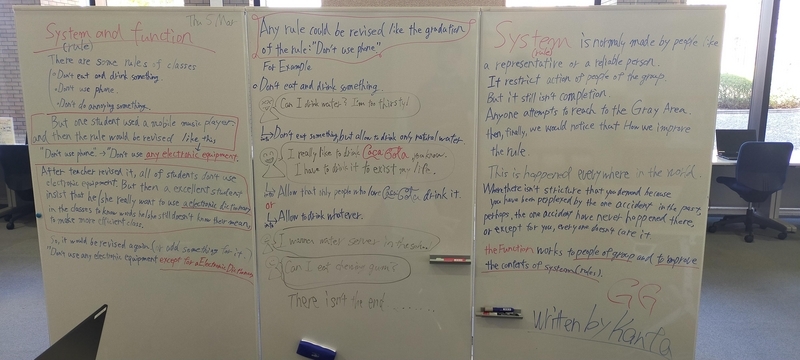 Thu 5 Mar
System and function
(rule)
There are some rules of classes
"Don't eat and drink something.
Don't use phone.
Don't do annoying something.
But one student used a mobile music player
and then the rule would be revised like this
"Don't use phone." → "Don't use any electronic equipment.
After teacher revised it, all of students don't use
electronic equipment. But then a excellent student
insist that he/she really want to use a electronic dictionary
in the classes to know words he/she still doesn't know their means,
to make more efficient class.
So, it would be revised again (it add something for it.)
"Don't use any electronic equipment except for a Electronic Dictionary
Any rule could be revised like the gradation
of the rule: "Don't use phone."
For Example
Don't eat and drink something.
Can I drink water? I'm so thirsty!
Don't eat something, but allow to drink only natural water.
I really like to drink Coca Cola, you know.
I have to drink it to exist my life.
Allow that only people who love Coca Cola drink it.
or
Allow to drink whatever.
I wanna water server in the
Can I eat chewing gum?
There isn't the end ......
System is normaly made by people like
(rule)
a representative or a reliable person.
It restrict action of people of the group.
But it still isn't completion.
Anyone attempts to reach to the Gray Area.
then, finally, we would notice that How we improve
the rule.
This is happened everywhere in the world.
Where there isn't stricture that you demand because
you have been perplexed by the one accident in the past,
perhaps, the one accident have never happened there,
or except for you, everyone doesn't care it.
the Function works to people of group and to improve
the contents of system (rules).
GG
Written by Kanta